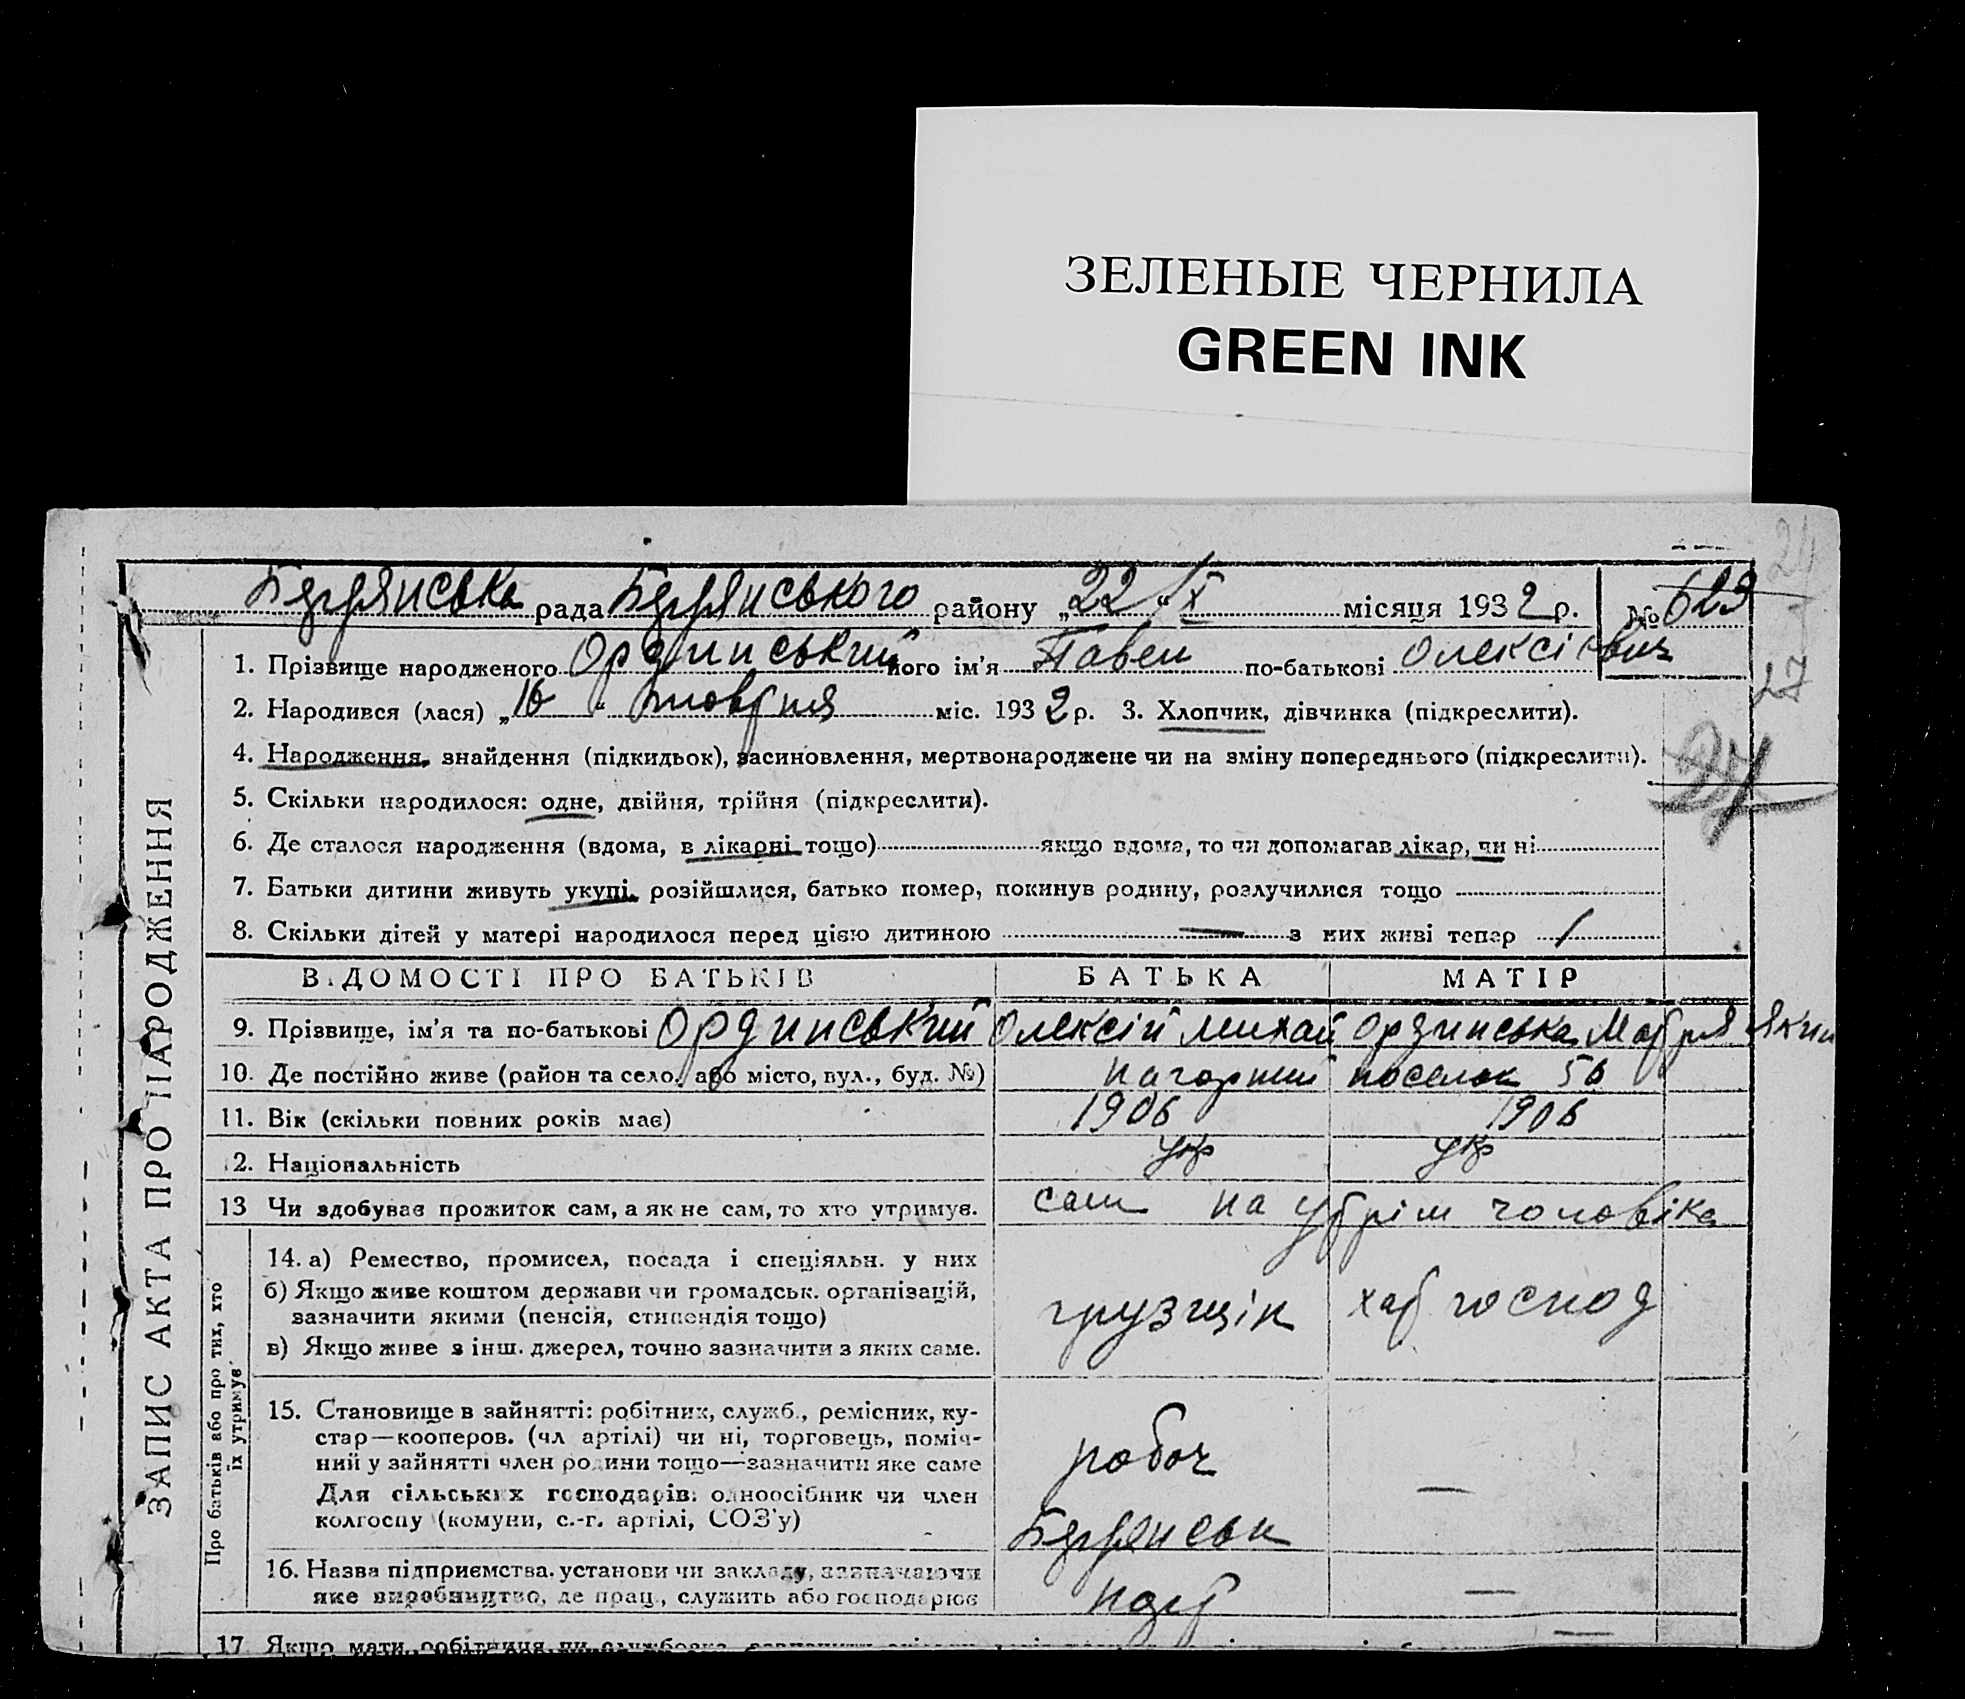 ЗЕЛЕНЫЕ ЧЕРНИЛА
GREEN INK
24
Бердянська рада Бердянського району „22“ X місяця 1932 р. № 629
1. Прізвище народженого Ординський його ім'я Павел по-батькові Олексієвич
27
2. Народився (лася) „16“ жовтня міс. 1932 р. 3. Хлопчик, дівчинка (підкреслити).
4. Народження, знайдення (підкидьок), засиновлення, мертвонароджене чи на зміну попереднього (підкреслити).
5. Скільки народилося: одне, двійня, трійня (підкреслити).
6. Де сталося народження (вдома, в лікарні тощо) якщо вдома, то чи допомагав лікар, чи ні
7. Батьки дитини живуть укупі, розійшлися, батько помер, покинув родину, розлучилися тощо
8. Скільки дітей у матері народилося перед цією дитиною — з них живі тепер 1
ЗАПИС АКТА ПРО НАРОДЖЕННЯ
ВІДОМОСТІ ПРО БАТЬКІВ БАТЬКА МАТІР
9. Прізвище, ім'я та по-батькові Ординський Олексій Михай Ординська Марія Яким
10. Де постійно живе (район та село, або місто, вул., буд. №) Нагорний поселок 56
11. Вік (скільки повних років має) 1906 1906
12. Національність укр укр
13 Чи здобуває прожиток сам, а як не сам, то хто утримує. сам на утрім чоловіка
Про батьків або про тих, хто їх утримує
14. а) Ремество, промисел, посада і спеціяльн. у них
б) Якщо живе коштом держави чи громадськ. організацій,
зазначити якими (пенсія, стипендія тощо) грузщік хат господ
в) Якщо живе з інш. джерел, точно зазначити з яких саме.
15. Становище в зайнятті: робітник, служб., ремісник, ку-
стар—кооперов. (чл артілі) чи ні, торговець, поміч-
ний у зайнятті член родини тощо—зазначити яке саме робоч —
Для сільських господарів: одноосібник чи член
колгоспу (комуни, с.-г. артілі, СОЗ'у) Бердянськ
16. Назва підприємства, установи чи закладу, зазначаючи
яке виробництво, де прац., служить або господарює порт —
17 Якщо мати робітниця чи службовка